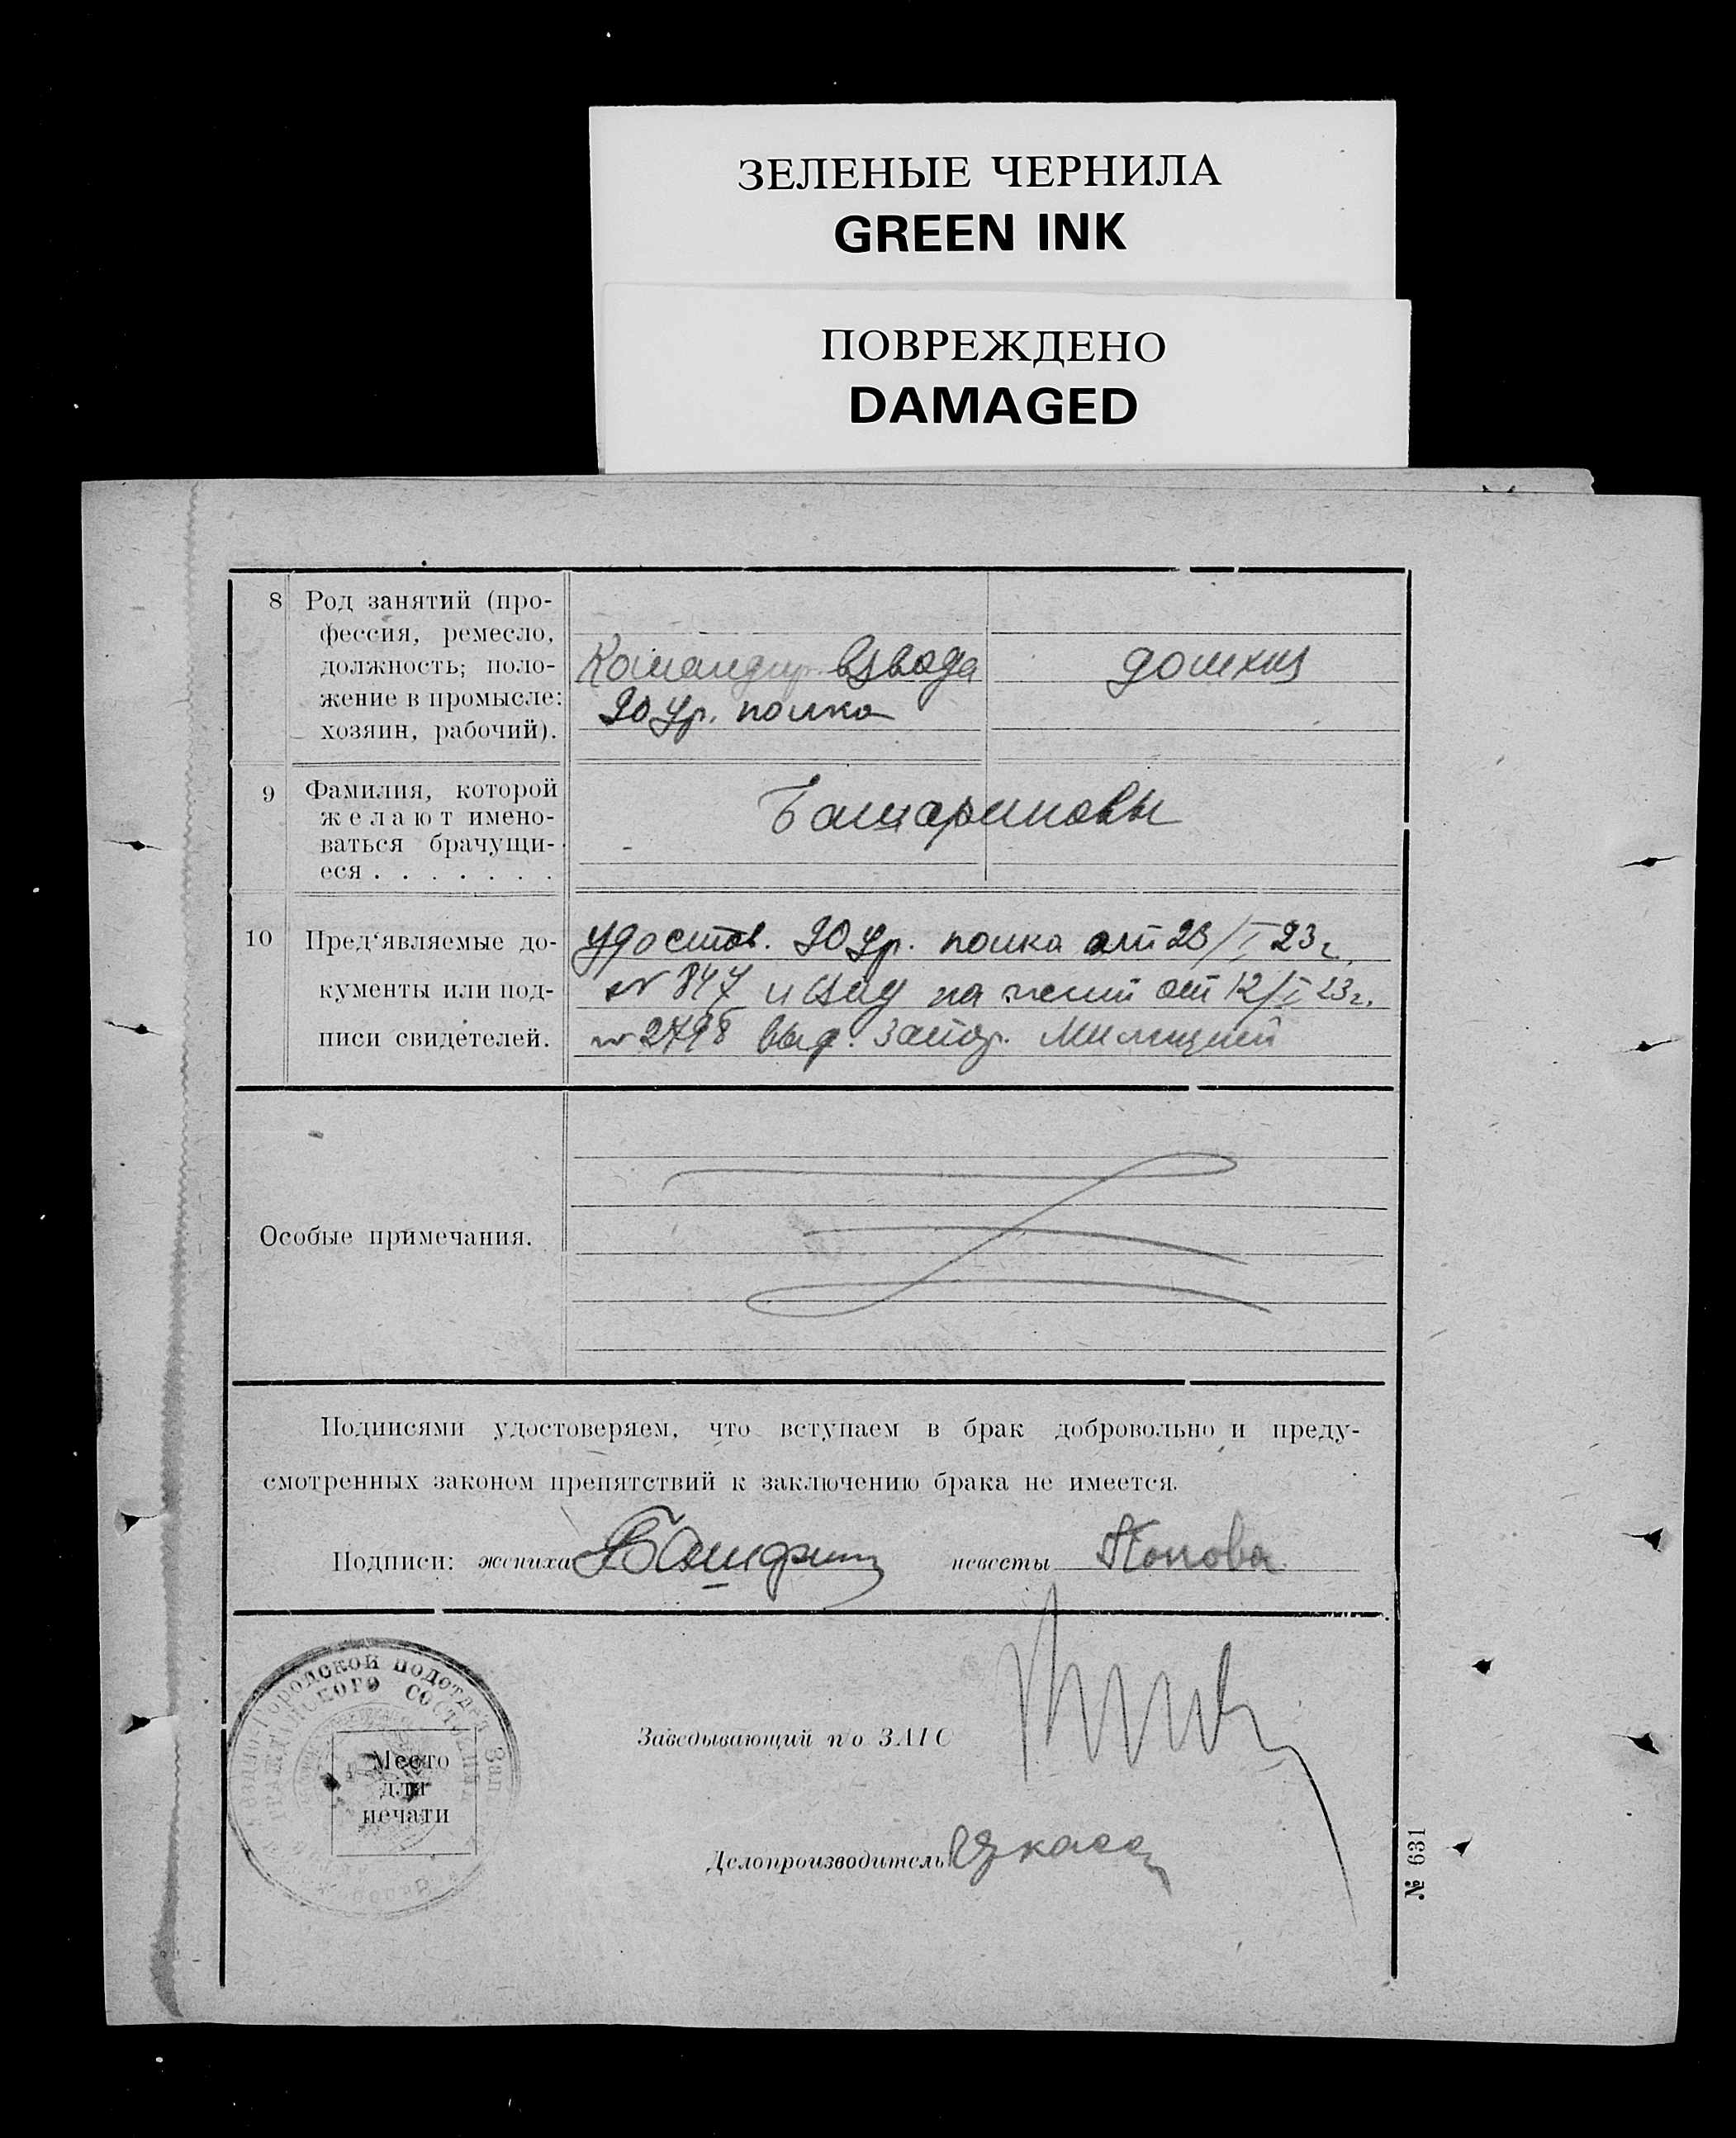 ЗЕЛЕНЫЕ ЧЕРНИЛА
GREEN INK
ПОВРЕЖДЕНО
DAMAGED
8 Род занятий (про-
фессия, ремесло,
должность; поло-
жение в промысле:
хозяин, рабочий).
Командир взвода
20 полка
домхоз
9 Фамилия, которой
желают имено-
ваться брачущи-
еся . . . . . . .
10 Пред'являемые до-
кументы или под-
писи свидетелей.
удостов. 20 полка от 23/I 23 г.
№ 847 и вид на жит от 12/I 23 г.
№ 2798 выд. Запор. Милицией
Особые примечания.
Подписями удостоверяем, что вступаем в брак добровольно и преду-
смотренных законом препятствий к заключению брака не имеется.
Подписи: жениха невесты Попова
Городской подотдел Зап
ГРАЖДАНСКОГО СОСТОЯНИЯ
Место
для
печати
Заведывающий п/о ЗАГС
Делопроизводитель
№ 631